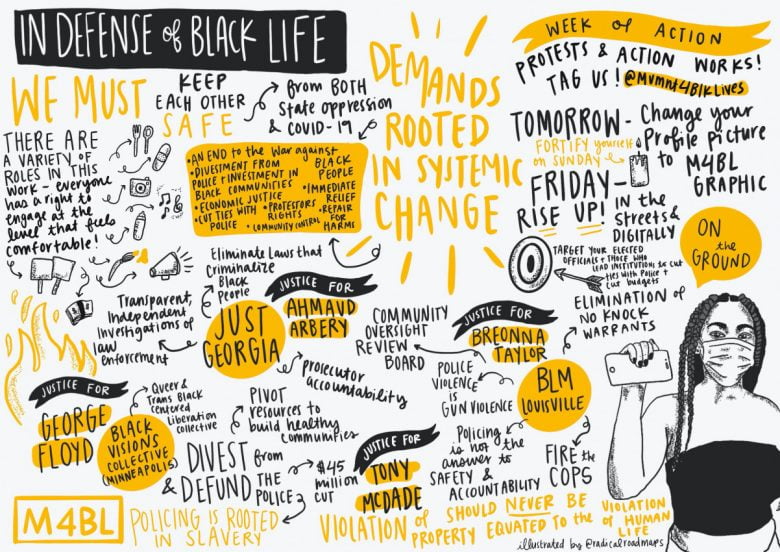 IN DEFENSE of BLACK LIFE
WE MUST
KEEP
EACH OTHER
SAFE
from BOTH
State oppression
& COVID-19
THERE ARE
A VARIETY OF
ROLES IN THIS
WORK - everyone
has a right to
engage at the
level that feels
comfortable!
• AN END to the War against
BLACK
PEOPLE
• DIVESTMENT FROM
POLICE & INVESTMENT IN
BLACK COMMUNITIES
• ECONOMIC JUSTICE
• CUT TIES WITH
POLICE
• PROTESTORS
RIGHTS
• COMMUNITY CONTROL
• IMMEDIATE
RELIEF
• REPAIR
FOR
HARMS
DEMANDS
ROOTED
IN SYSTEMIC
CHANGE
WEEK of ACTION
PROTESTS & ACTION WORKS!
TAG US! @Mvmnt4BlkLives
TOMORROW - Change your
Profile Picture
to M4BL
GRAPHIC
FORTIFY yourself
on SUNDAY
FRIDAY -
RISE UP!
IN the
STREETS &
DIGITALLY
TARGET YOUR ELECTED
OFFICIALS & THOSE WHO
LEAD INSTITUTIONS to cut
ties with Police &
cut budgets
ON
the
GROUND
Eliminate Laws that
Criminalize
Black
People
Transparent,
Independent
Investigations of
law
enforcement
JUST
GEORGIA
JUSTICE FOR
AHMAUD
ARBERY
prosecutor
accountability
COMMUNITY
OVERSIGHT
REVIEW
BOARD
JUSTICE FOR
BREONNA
TAYLOR
ELIMINATION of
NO KNOCK
WARRANTS
POLICE
VIOLENCE
is
GUN VIOLENCE
BLM
LOUISVILLE
Policing
is not the
answer to
SAFETY &
ACCOUNTABILITY
FIRE the
COPS
JUSTICE FOR
GEORGE
FLOYD
Queer &
Trans Black
Centered
Liberation
collective
BLACK
VISIONS
COLLECTIVE
(MINNEAPOLIS)
PIVOT
resources to
build healthy
communities
DIVEST from
& DEFUND the
POLICE
$45
million
CUT
JUSTICE FOR
TONY
MCDADE
M4BL
POLICING IS ROOTED
IN SLAVERY
VIOLATION of
PROPERTY
SHOULD NEVER BE
EQUATED to the
VIOLATION
OF HUMAN
LIFE
illustrated by @radicalroadmaps